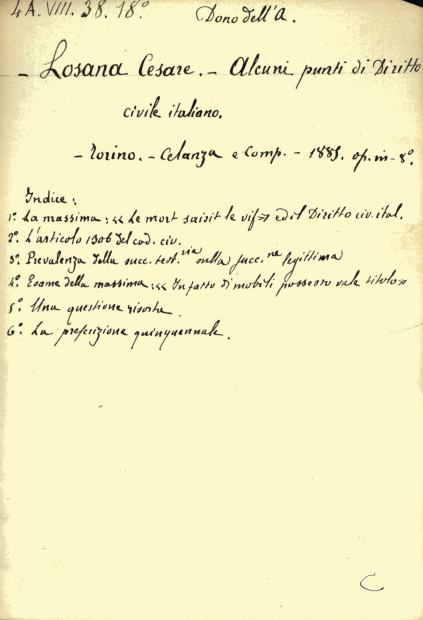 4A. VIII. 38. 18º
Dono dell'A.
- Losana Cesare. - Alcuni punti di Diritto
civile italiano.
- Torino. - Celanza e Comp. - 1885. op. in-8º.
Indice:
1º. La massima: « Le mort saisit le vif » ed il Diritto civ. ital.
2º. L'articolo 1306 del cod. civ.
3º. Prevalenza della succ. test.ria sulla succ.ne legittima
4º. Esame della massima: « In fatto di mobili possesso vale titolo »
5º. Una questione risorta.
6º. La prescrizione quinquennale.
C